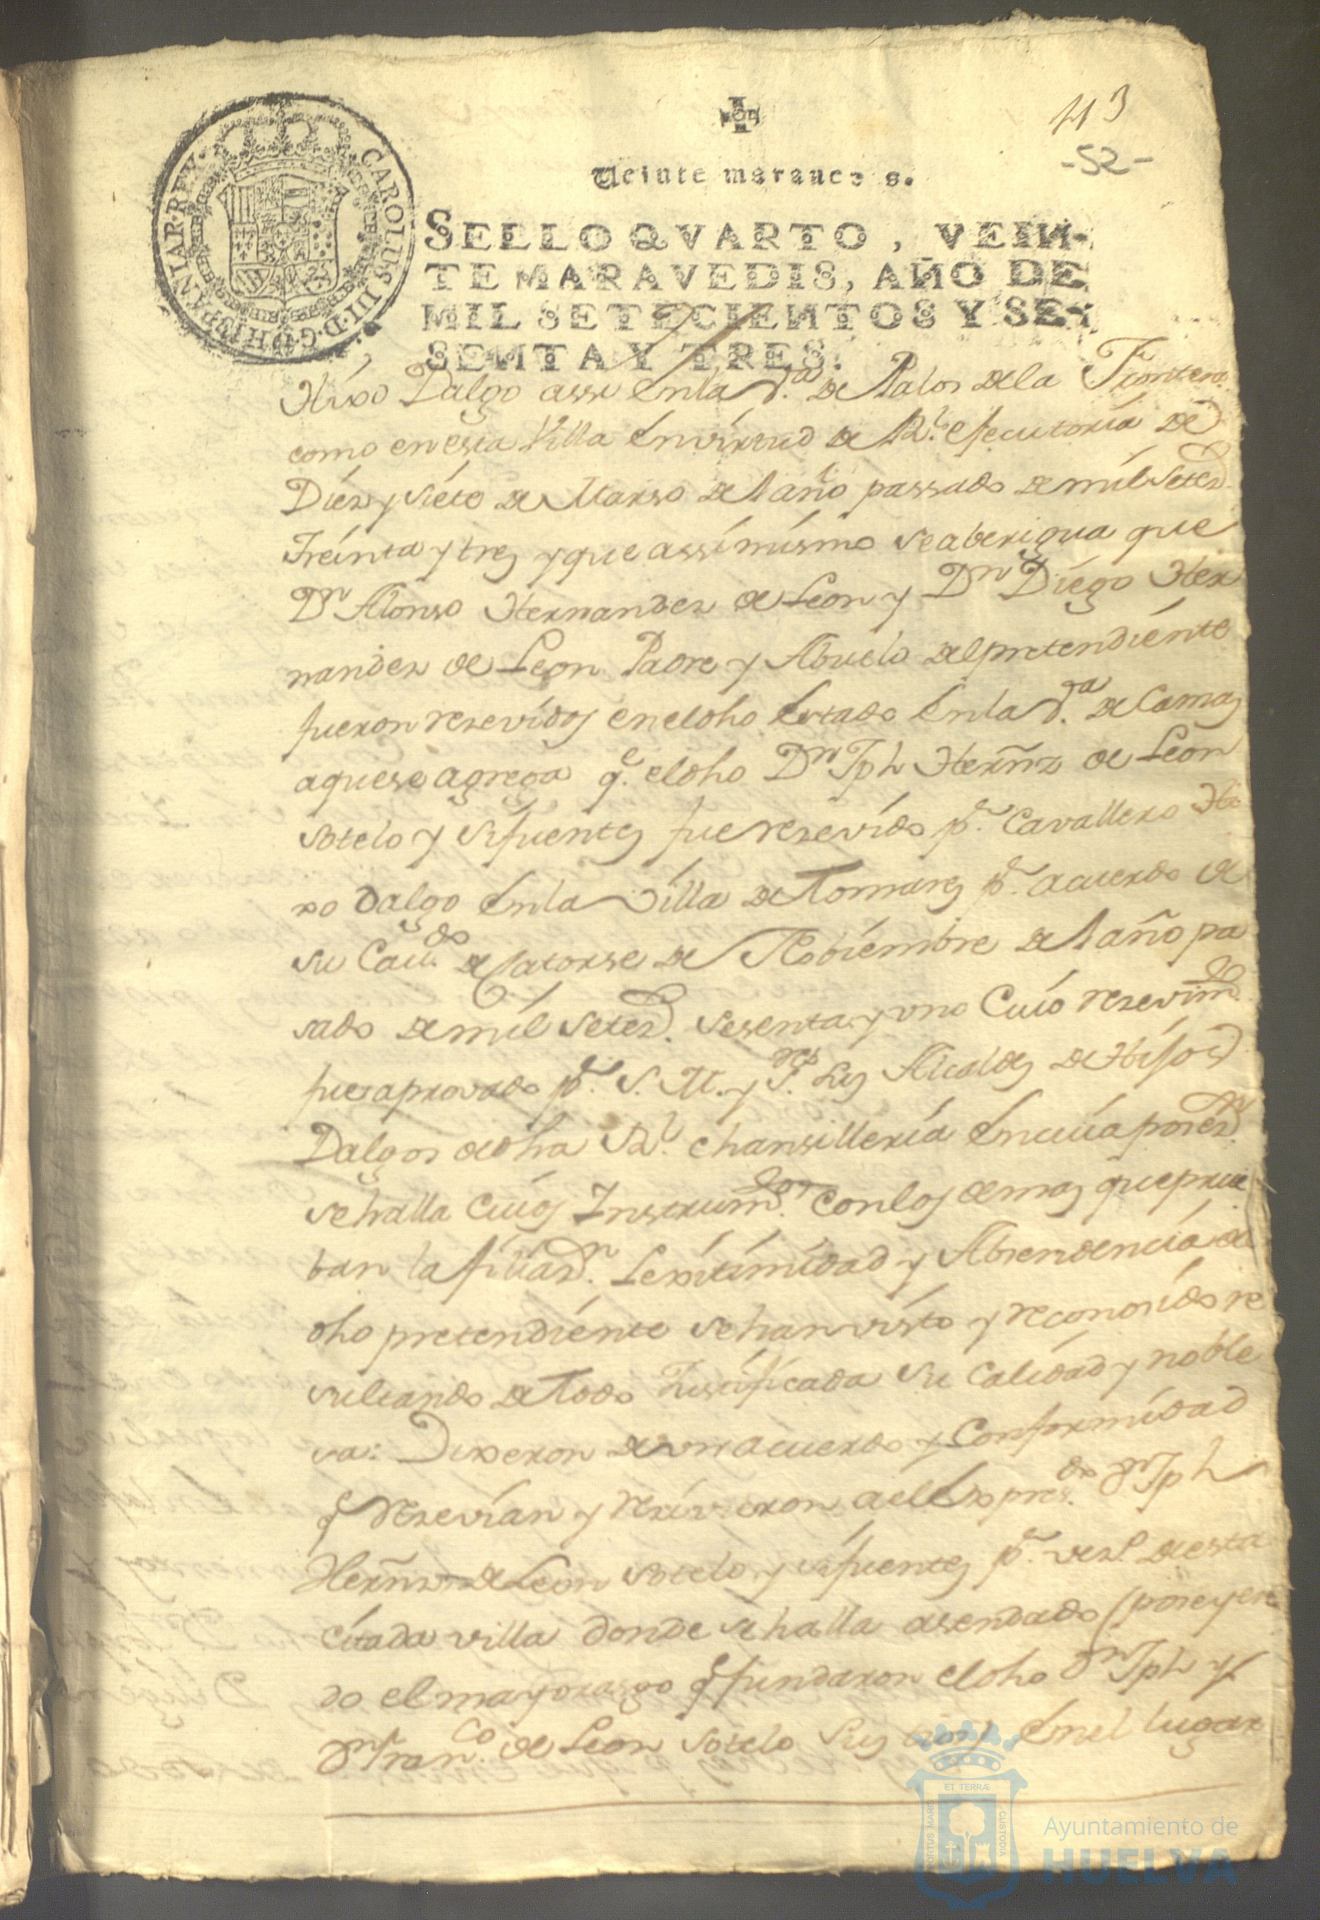 113
-52-
Veinte maravedis.
SELLO QVARTO, VEIN-
TE MARAVEDIS, AÑO DE
MIL SETECIENTOS Y SE-
SENTA Y TRES.
CAROLUS III·D·G·HISPANIAR·REX·
Hixo Dalgo assi en la V.ª de Palos de la Frontera
como en esta Villa en virtud de R.l efecutoria de
Diez y siete de Marso de l año passado de mil Setez.
Treinta y tres y que assimismo se aberigua que
Dn Alonso Hernandez de Leon y Dn Diego Her
nandez de Leon Padre y Abuelo del pretendiente
fueron rezevidos en el dho Estado en la V.ª de Camas
a que se agrega q.e el dho Dn Jph Herñz de Leon
Sotelo y Sifuentes fue rezevido p.r Cavallero Hi
xo dalgo en la Villa de Tomares p.r acuerdo de
su Cav.do de Catorse de Nobiembre de l año pa
sado de mil Setez. sesenta y uno Cuio rezevim.do
fue aprovado p.r S. M. y S.res sus Alcaldes de Hijos
Dalgos de dha R.l Chansilleria en cuia poses.n
se halla Cuios Instrum.dos con los demas que prue
ban la filiaz.n Lexitimidad y Absendencia de
dho pretendiente se han visto y reconosido re
sultando de todo Justificada su Calidad y noble
va: Dixeron de un acuerdo y Conformidad
q rezevian y rezivieron a el expres.do Dn Jph
Herñz de Leon Sotelo y Sifuentes p.r vez.o de esta
citada villa donde se halla asendado (poseyen
do el mayorasgo q fundaron el dho Dn Jph y
Dn Fran.co de Leon Sotelo sus en el lugar
ET TERRÆ
CUSTODIA
PORTUS MARIS
Ayuntamiento de
HUELVA